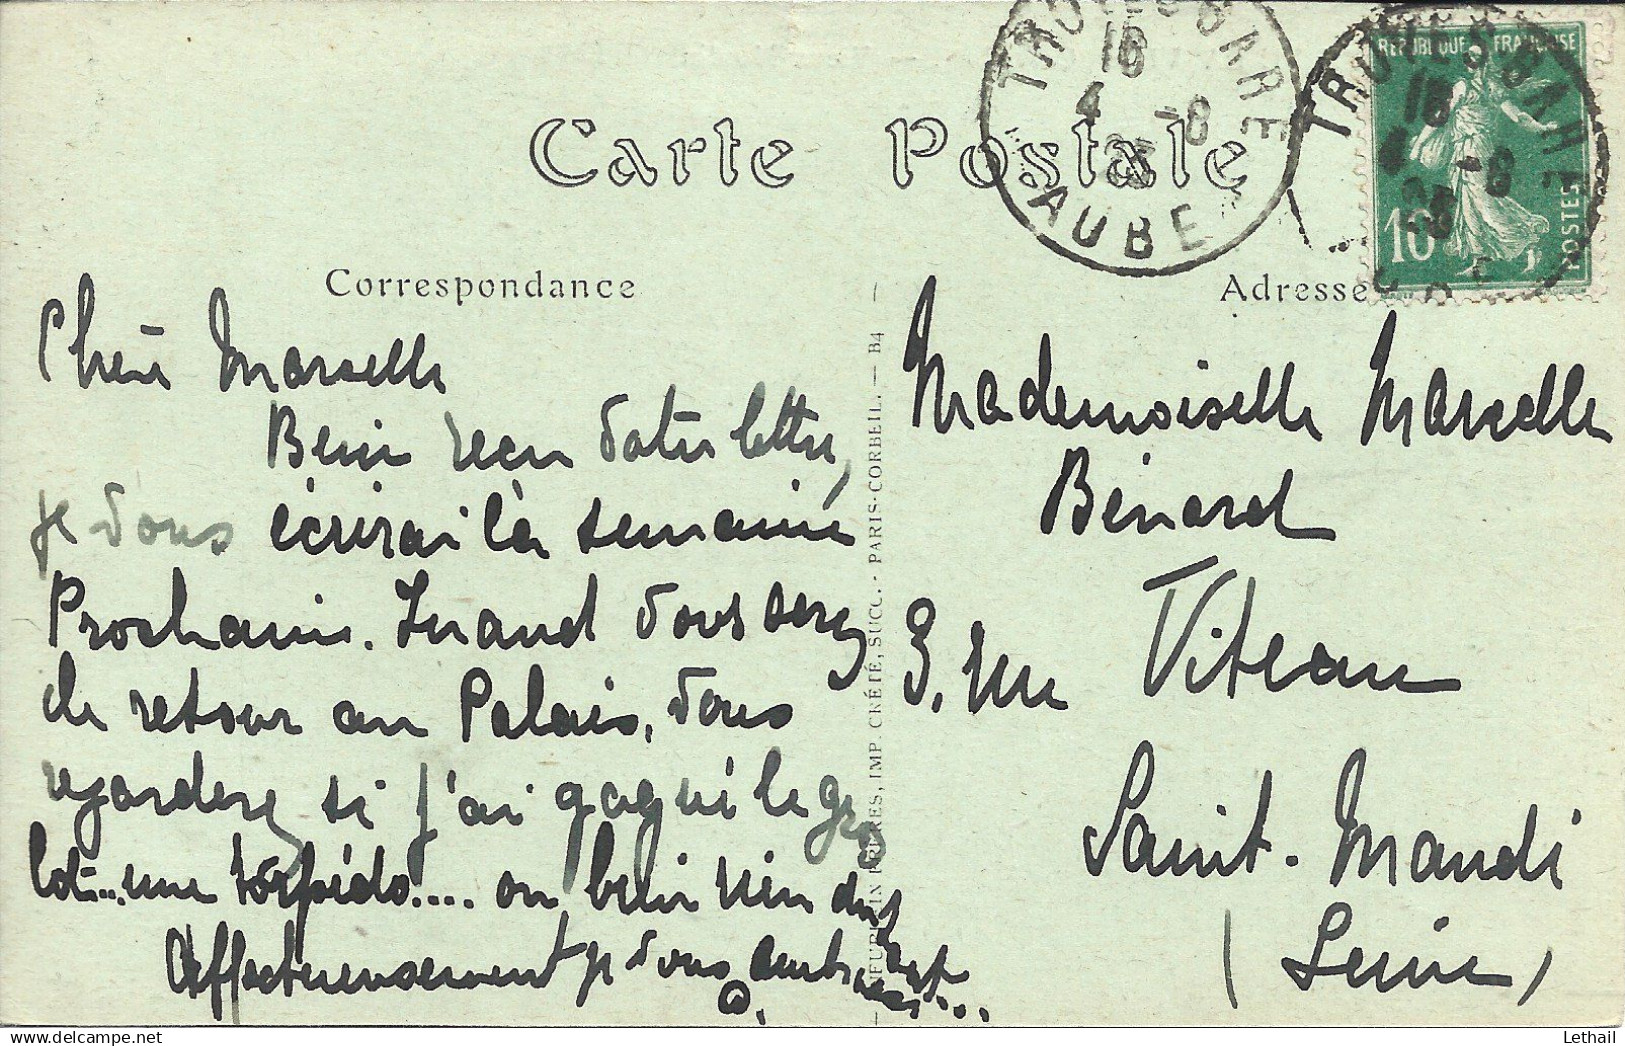 TROYES GARE
16
4 -8
25
AUBE
TROYES GARE
16
4 -8
25
REPUBLIQUE FRANÇAISE
10
POSTES
Carte Postale
Correspondance
Adresse
Chère Marcelle
Bien reçu votre lettre,
je vous écrirai la semaine
Prochaine. Quand vous serez
de retour au Palais, vous
regarderez si j'ai gagné le gros
lot... une torpédo.... ou bien rien du
Affectueusement je vous
Mademoiselle Marcelle
Bénard
3, rue Viteau
Saint-Mandé
(Seine)
FRÈRES, IMP. CRÉTÉ, SUCC. - PARIS-CORBEIL. — B4
Lethail